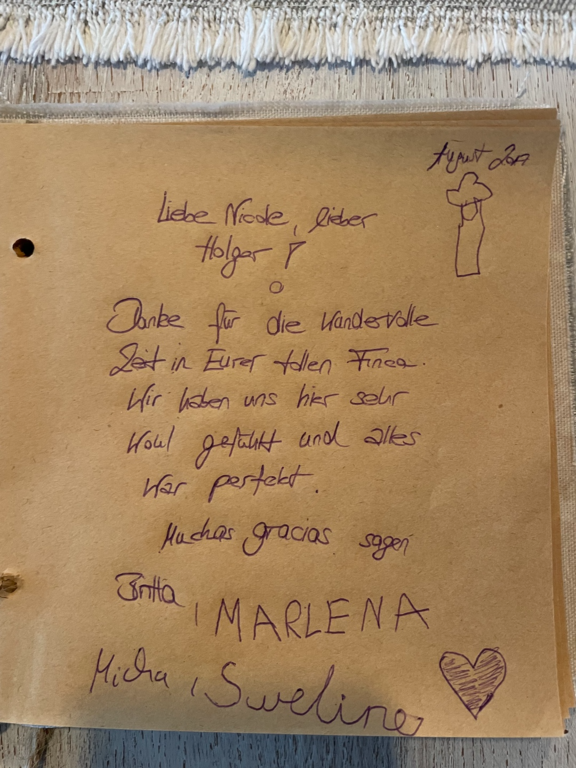 August 2019
Liebe Nicole, lieber
Holger!
Danke für die wundervolle
Zeit in Eurer tollen Finca.
Wir haben uns hier sehr
wohl gefühlt und alles
war perfekt.
Muchas gracias sagen
Britta, MARLENA
Micha, Sweline